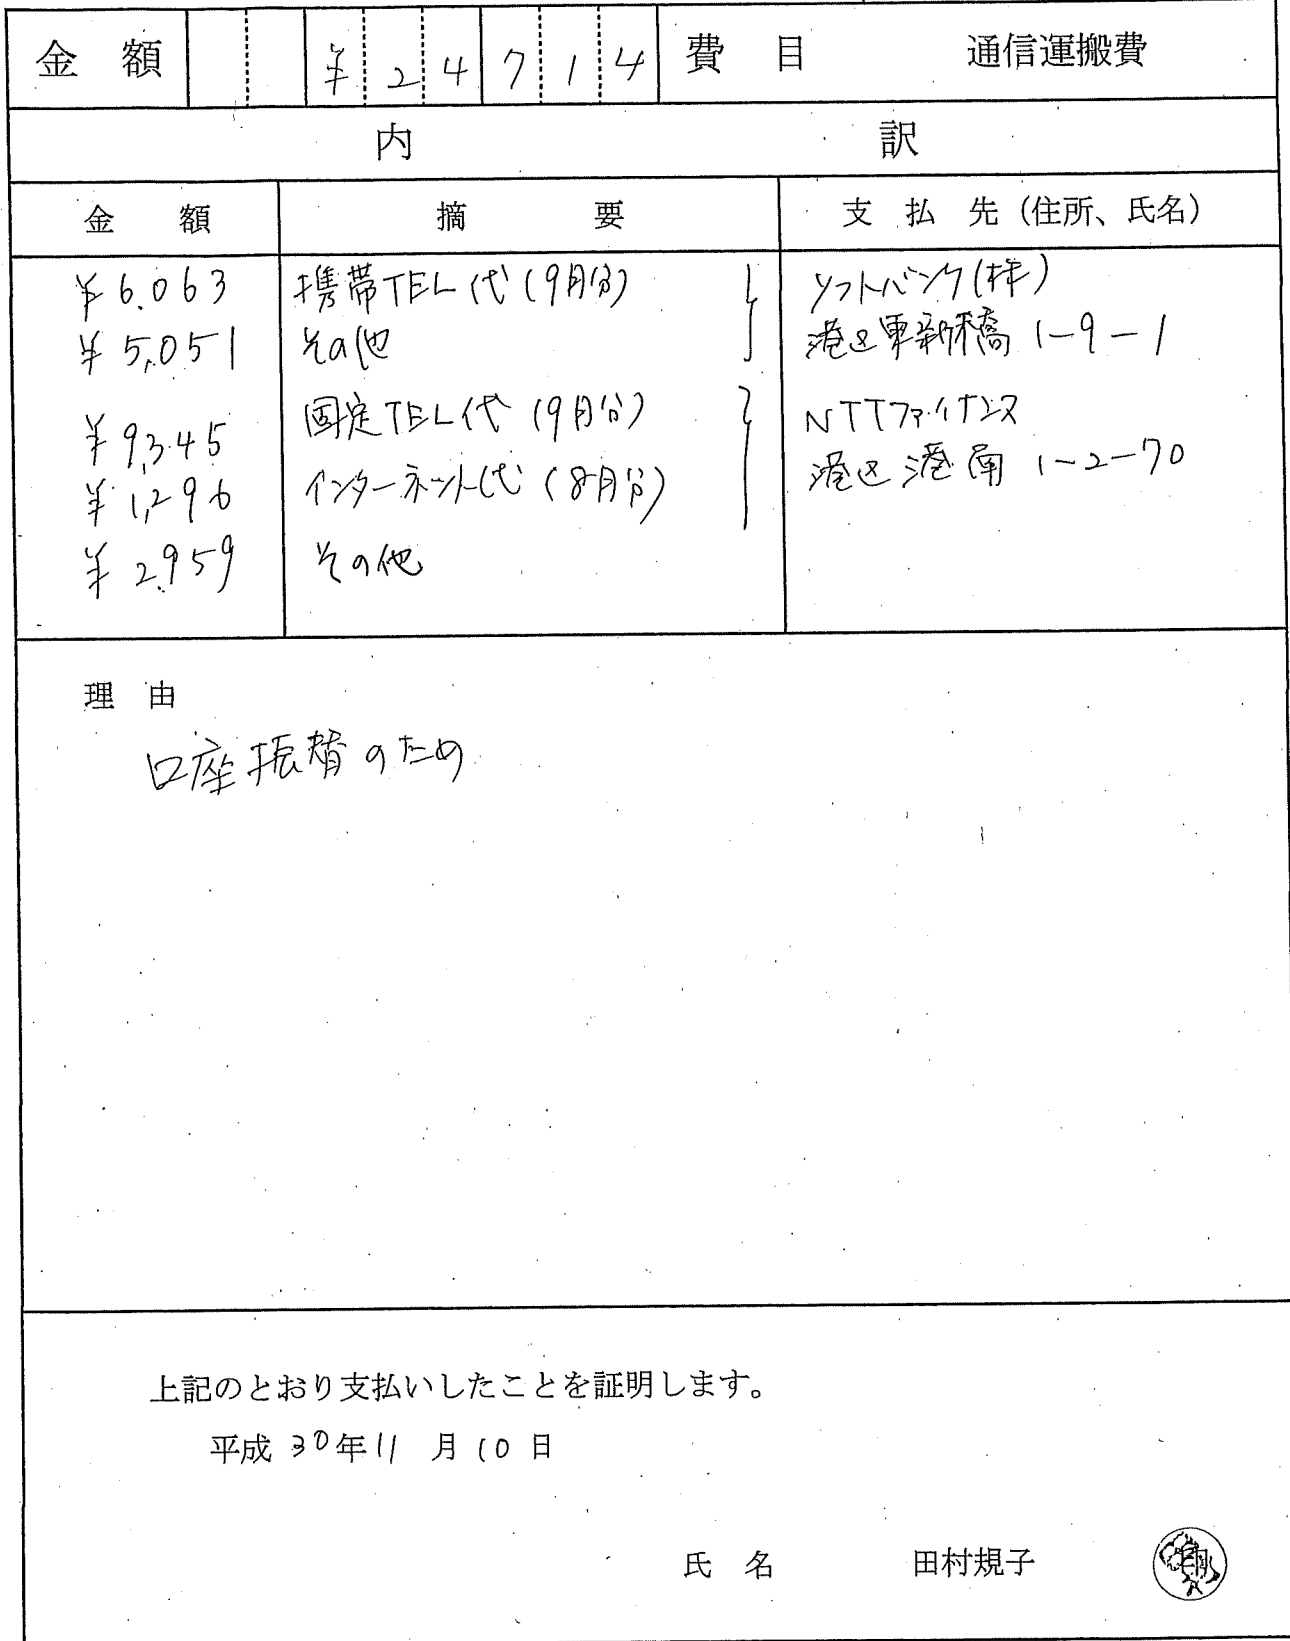 金 額 ¥24714 費 目 通信運搬費
内 訳
金 額 摘 要 支 払 先 (住所、氏名)
¥6.063 携帯TEL代(9月分) ソフトバンク(株)
¥5,051 その他 港区東新橋 1-9-1
¥9,345 固定TEL代(9月分) NTTファイナンス
¥1,296 インターネット代(8月分) 港区港南 1-2-70
¥2.959 その他
理 由
口座振替のため
上記のとおり支払いしたことを証明します。
平成 30年11月10日
氏 名 田村規子